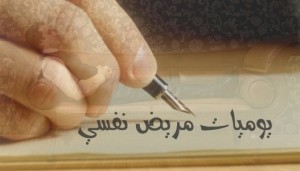 يوميات مريض نفسي